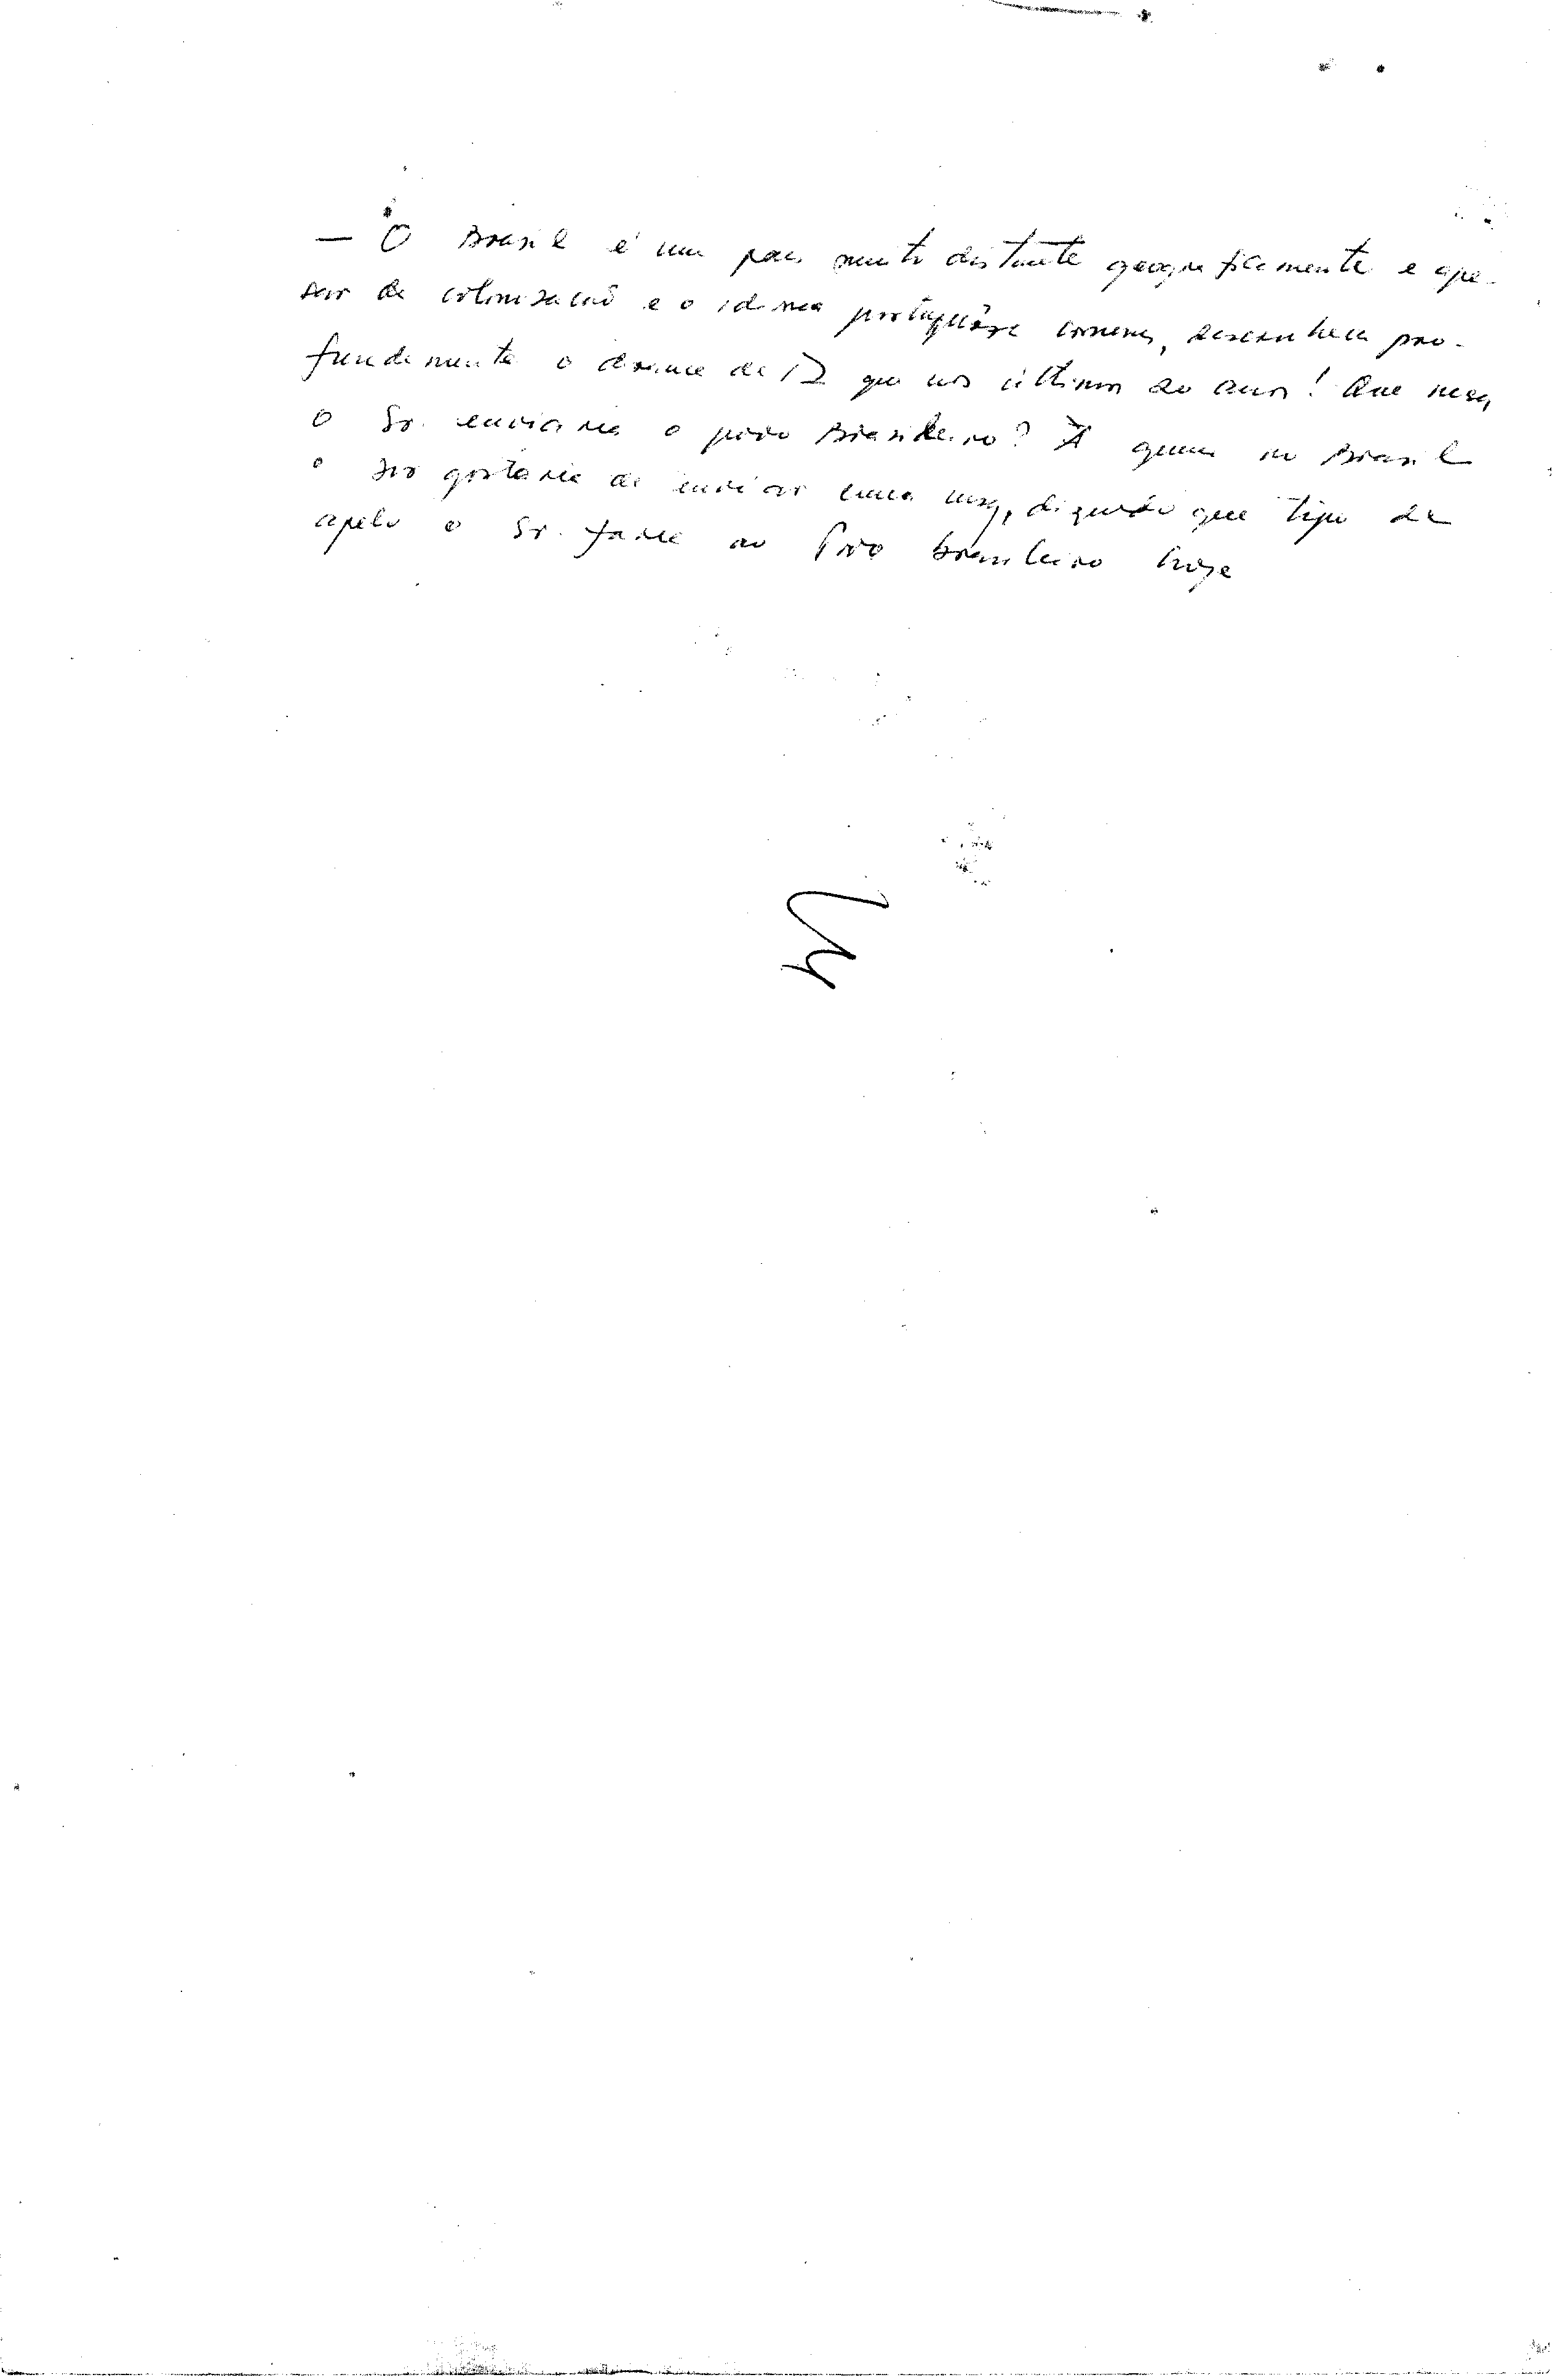 — O Brasil é um pais muito distante geograficamente e ape-
sar da colonisacaõ e o idioma português comum, desconhece pro-
fundamente o drama de que nos últimos 20 anos! Que msg
o Sr. enviaria o povo Brasileiro? A quem no Brasil
o Snr gostaria de enviar uma msg, digando que tipo de
apelo o Sr. faria ao Povo brasileiro hoje